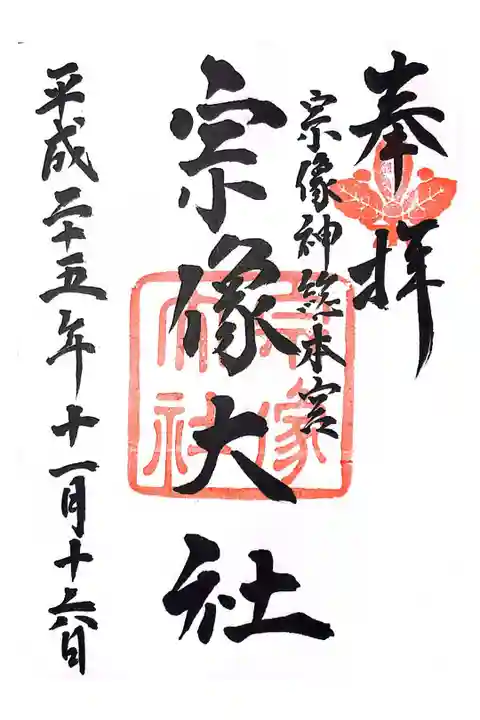 奉拝
宗像神総本宮
宗像大社
平成二十五年十一月十六日
宗像大社